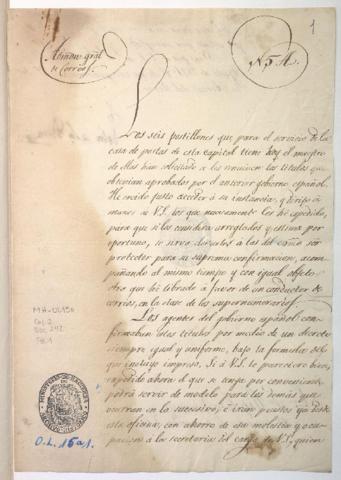 1
Admon. gral
de Correos.
N.º 5. A.
Los seis postillones que para el servicio de la
casa de postas de esta capital tiene hoy el maestro
de ellas han solicitado se les renueven los títulos que
obtenian aprobados por el anterior gobierno español.
He creido justo acceder á su instancia, y dirijo á
manos de V.S. los que nuevamente les he expedido,
para que si los considera arreglados y estima por
oportuno, se sirva darles á la del
protector para su suprema confirmacion, acom-
pañando al mismo tiempo y con igual objeto
otro que he librado á favor de un conductor de
correos, en la clase de los supernumerarios.
Los agentes del gobierno español con-
firmaban estos títulos por medio de un decreto
siempre igual y uniforme, bajo la formula del
que incluyo impreso. Si á V.S. le pareciere bien,
expedido ahora el que se tenga por conveniente
podrá servir de modelo para los demas que
ocurran en lo sucesivo, é irán puestos ya desde
esta oficina, con ahorro de esa molestia y ocu-
pacion á la secretaria del cargo de V.S., quien
MH-OL 15a
Caj. 2
Doc. 242
Fol. 1
O.L. 15a1